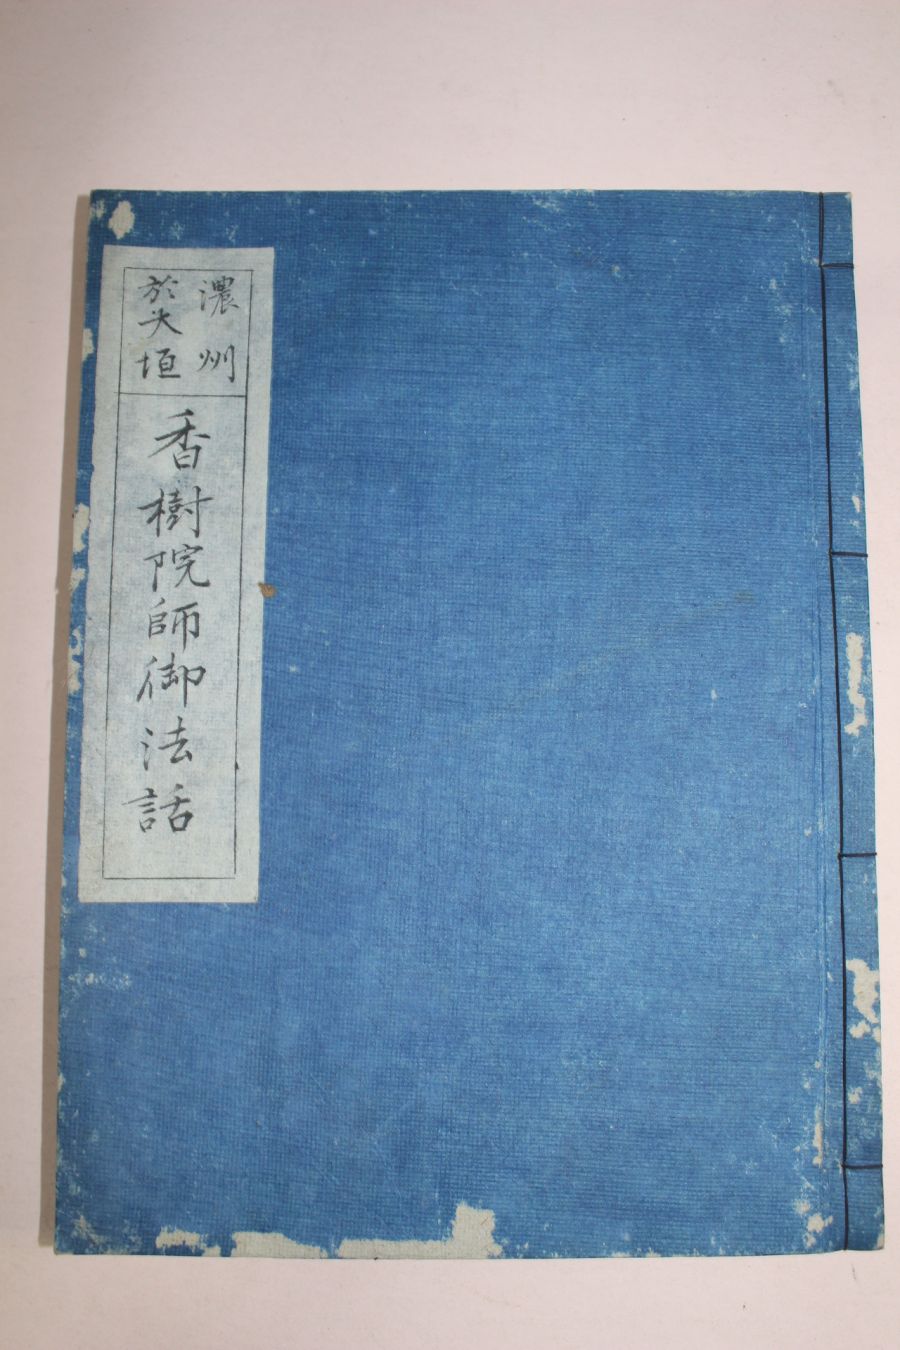 濃州
於大垣
香樹院師御法話